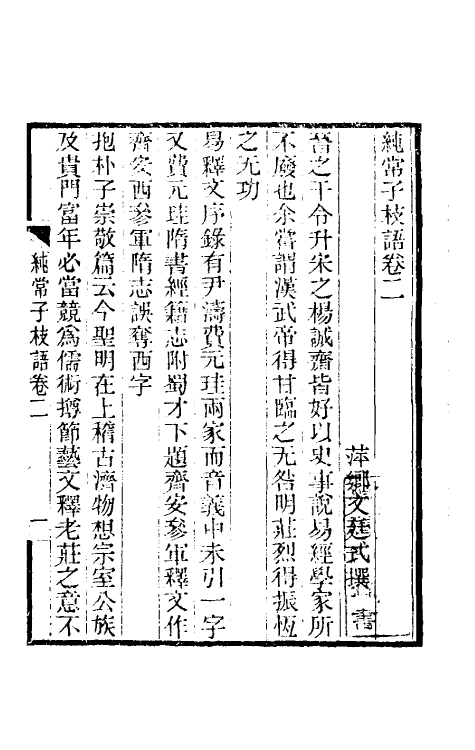 純常子枝語卷二
萍鄉文廷式撰
晉之干令升宋之楊誠齋皆好以史事說易經學家所
不廢也余嘗謂漢武帝得甘臨之无咎明莊烈得振恆
之无功
易釋文序錄有尹濤費元珪兩家而音義中未引一字
又費元珪隋書經籍志附蜀才下題齊安參軍釋文作
齊安西參軍隋志誤奪西字
抱朴子崇敬篇云今聖明在上稽古濟物想宗室公族
及貴門富年必當競為儒術撙節藝文釋老莊之意不
純常子枝語卷二
一